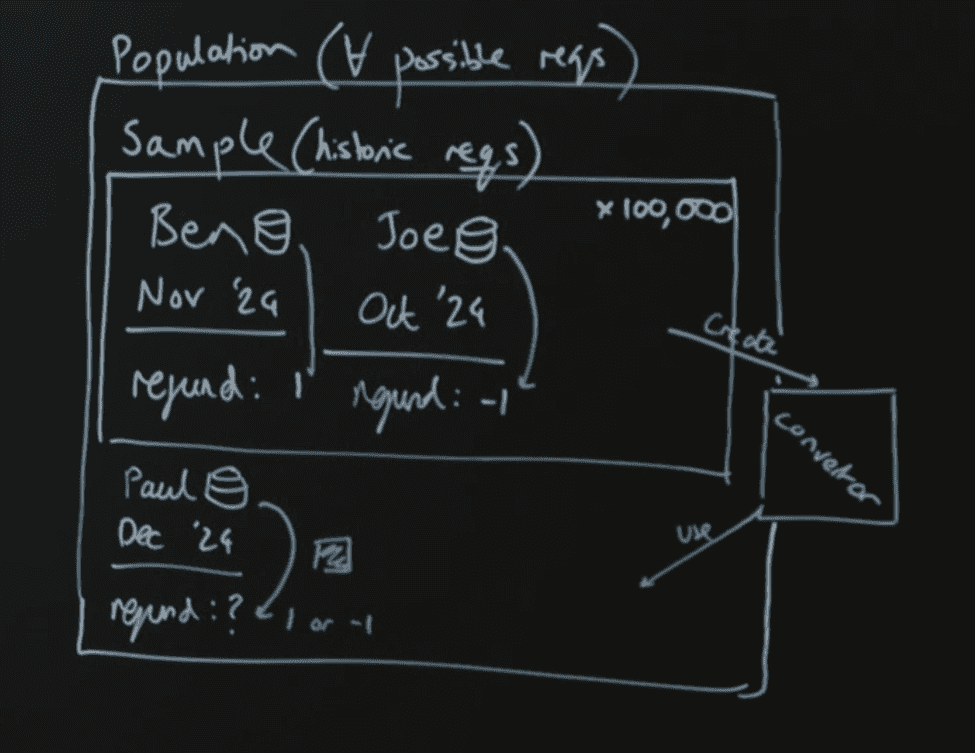 Population (∀ possible reqs)
Sample (historic reqs)
x 100,000
Ben
Nov '24
refund: 1
Joe
Oct '24
refund: -1
Create
Convertor
use
Paul
Dec '24
refund: ?
1 or -1